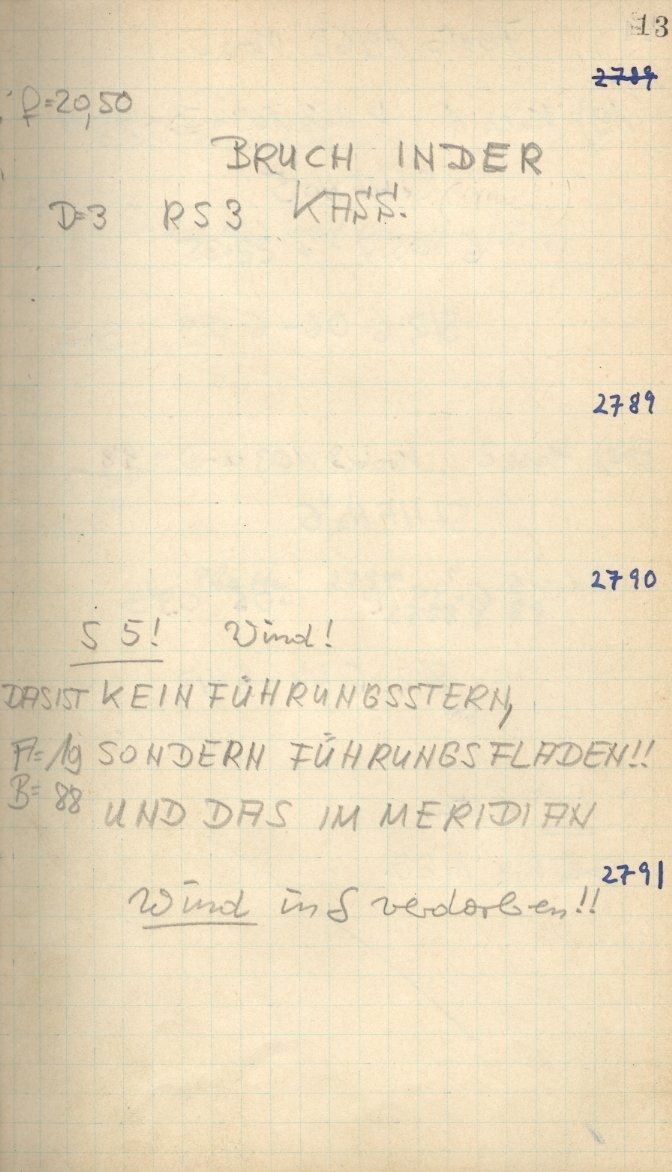 13
2789
f=20,50
BRUCH IN DER
D=3 RS3 KASS.
2789
2790
S 5! Wind!
DAS IST KEIN FÜHRUNGSSTERN,
SONDERN FÜHRUNGSFLADEN!!
B= 88 UND DAS IM MERIDIAN
2791
Wind in S verdorben!!